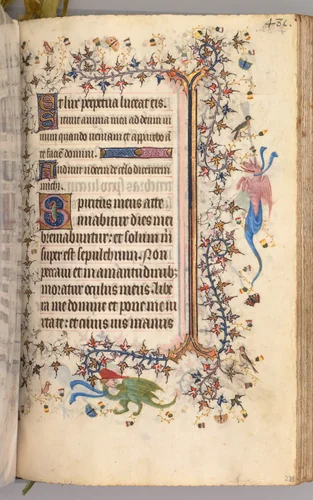 486.
Et lux perpetua luceat eis.
Sitiuit anima mea ad deum ui
uum quando ueniam et apparebo an
te faciem domini.
Audiui uocem de celo dicentem
michi.
Spiritus meus atte
nuabitur dies mei
breuiabuntur: et solum m
super est sepulchrum. Non
peccaui et in amaritudinib;
moratur oculus meus. Libe
ra me domine et pone me iu
xta te: et cuius uis manus